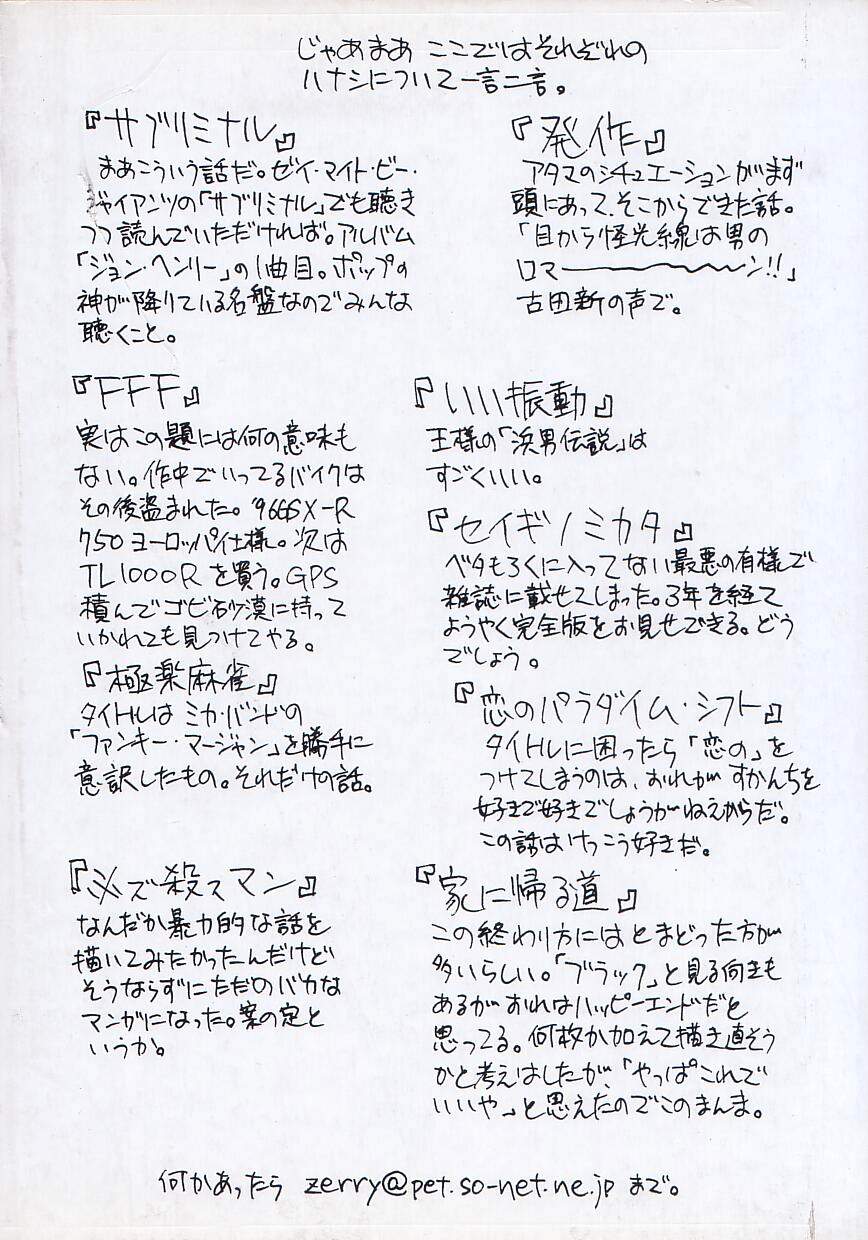 じゃあまあ ここではそれぞれの
ハナシについて一言二言。
『サブリミナル』
まあこういう話だ。ゼイ・マイト・ビー・
ジャイアンツの「サブリミナル」でも聴き
つつ読んでいただければ。アルバム
「ジョン・ヘンリー」の1曲目。ポップの
神が降りている名盤なのでみんな
聴くこと。
『FFF』
実はこの題には何の意味も
ない。作中でいってるバイクは
その後盗まれた。'96GSX-R
750ヨーロッパ仕様。次は
TL1000Rを買う。GPS
積んでゴビ砂漠に持って
いかれても見つけてやる。
『極楽麻雀』
タイトルは ミカ・バンドの
「ファンキー・マージャン」を勝手に
意訳したもの。それだけの話。
『必ズ殺スマン』
なんだか暴力的な話を
描いてみたかったんだけど
そうならずにただのバカな
マンガになった。案の定と
いうか。
『発作』
アタマのシチュエーションがまず
頭にあって、そこからできた話。
「目から怪光線は男の
ロマ――――ン!!」
古田新の声で。
『いい振動』
王様の「浜男伝説」は
すごくいい。
『セイギノミカタ』
ベタもろくに入ってない最悪の有様で
雑誌に載せてしまった。3年を経て
ようやく完全版をお見せできる。どう
でしょう。
『恋のパラダイム・シフト』
タイトルに困ったら「恋の」を
つけてしまうのは、おれが すかんちを
好きで好きでしょうがねえからだ。
この話はけっこう好きだ。
『家に帰る道』
この終わり方にはとまどった方が
多いらしい。「ブラック」と見る向きも
あるがおれはハッピーエンドだと
思ってる。何枚か加えて描き直そう
かと考えはしたが、「やっぱこれで
いいや」と思えたのでこのまんま。
何かあったら zerry@pet.so-net.ne.jp まで。